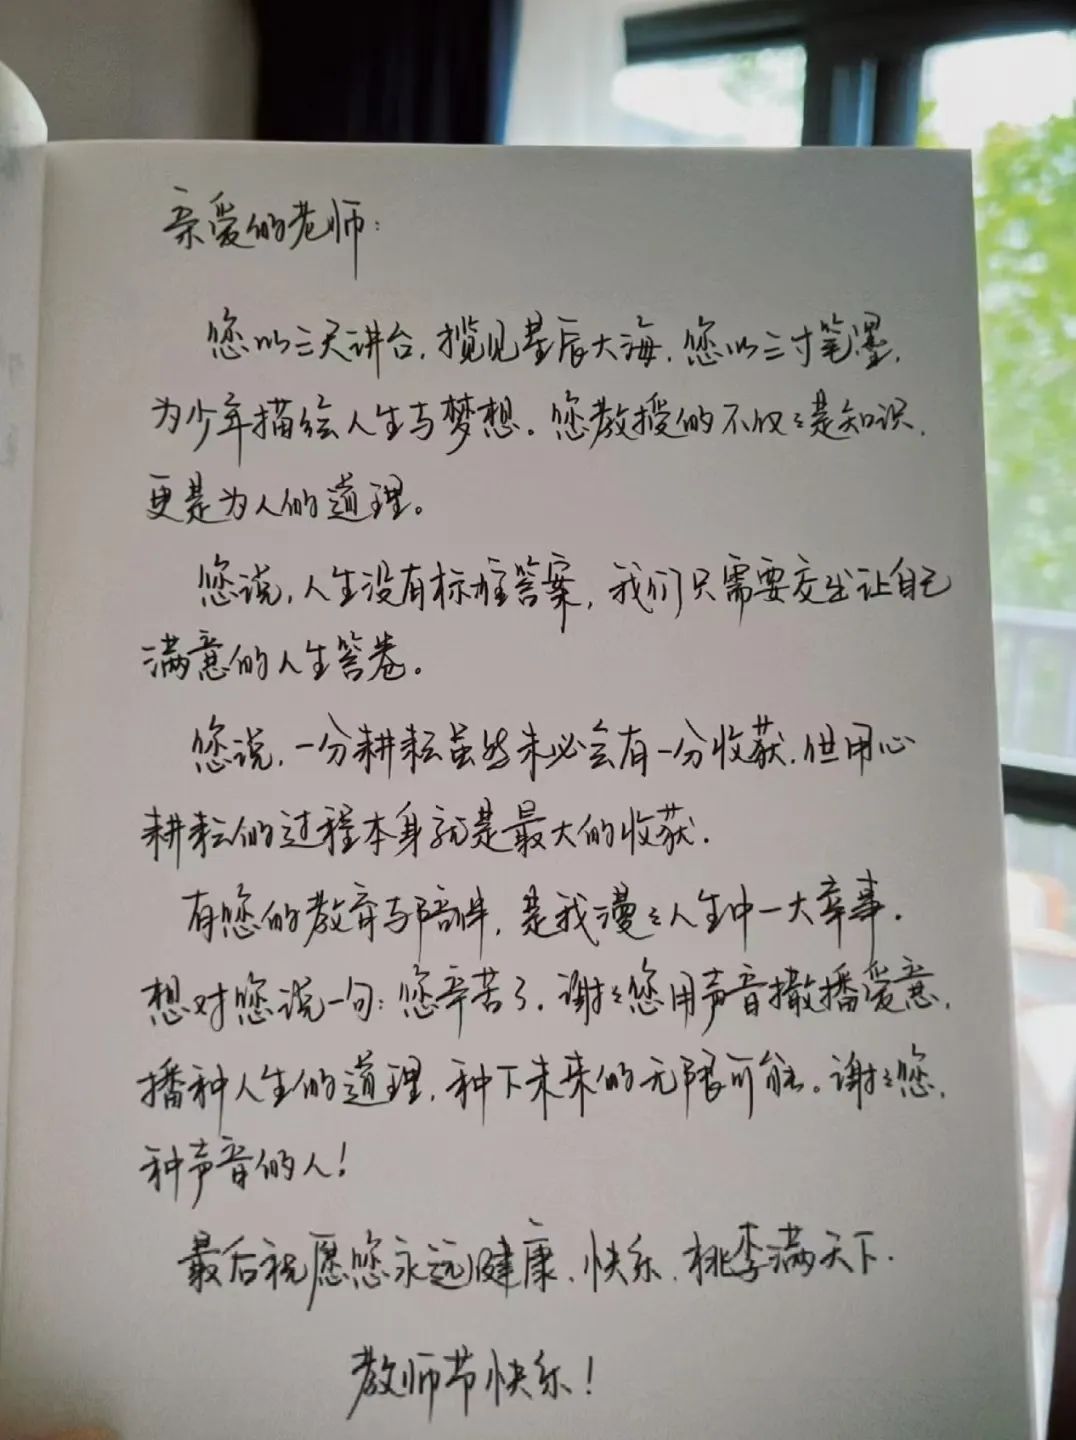 亲爱的老师:
您以三尺讲台,揽见星辰大海,您以三寸笔墨,
为少年描绘人生与梦想。您教授的不仅仅是知识,
更是为人的道理。
您说,人生没有标准答案,我们只需要交出让自己
满意的人生答卷。
您说,一分耕耘虽然未必会有一分收获,但用心
耕耘的过程本身就是最大的收获.
有您的教育与陪伴,是我漫漫人生中一大幸事.
想对您说一句:您辛苦了,谢谢您用声音撒播爱意,
播种人生的道理,种下未来的无限可能。谢谢您,
种声音的人!
最后祝愿您永远健康、快乐,桃李满天下.
教师节快乐!